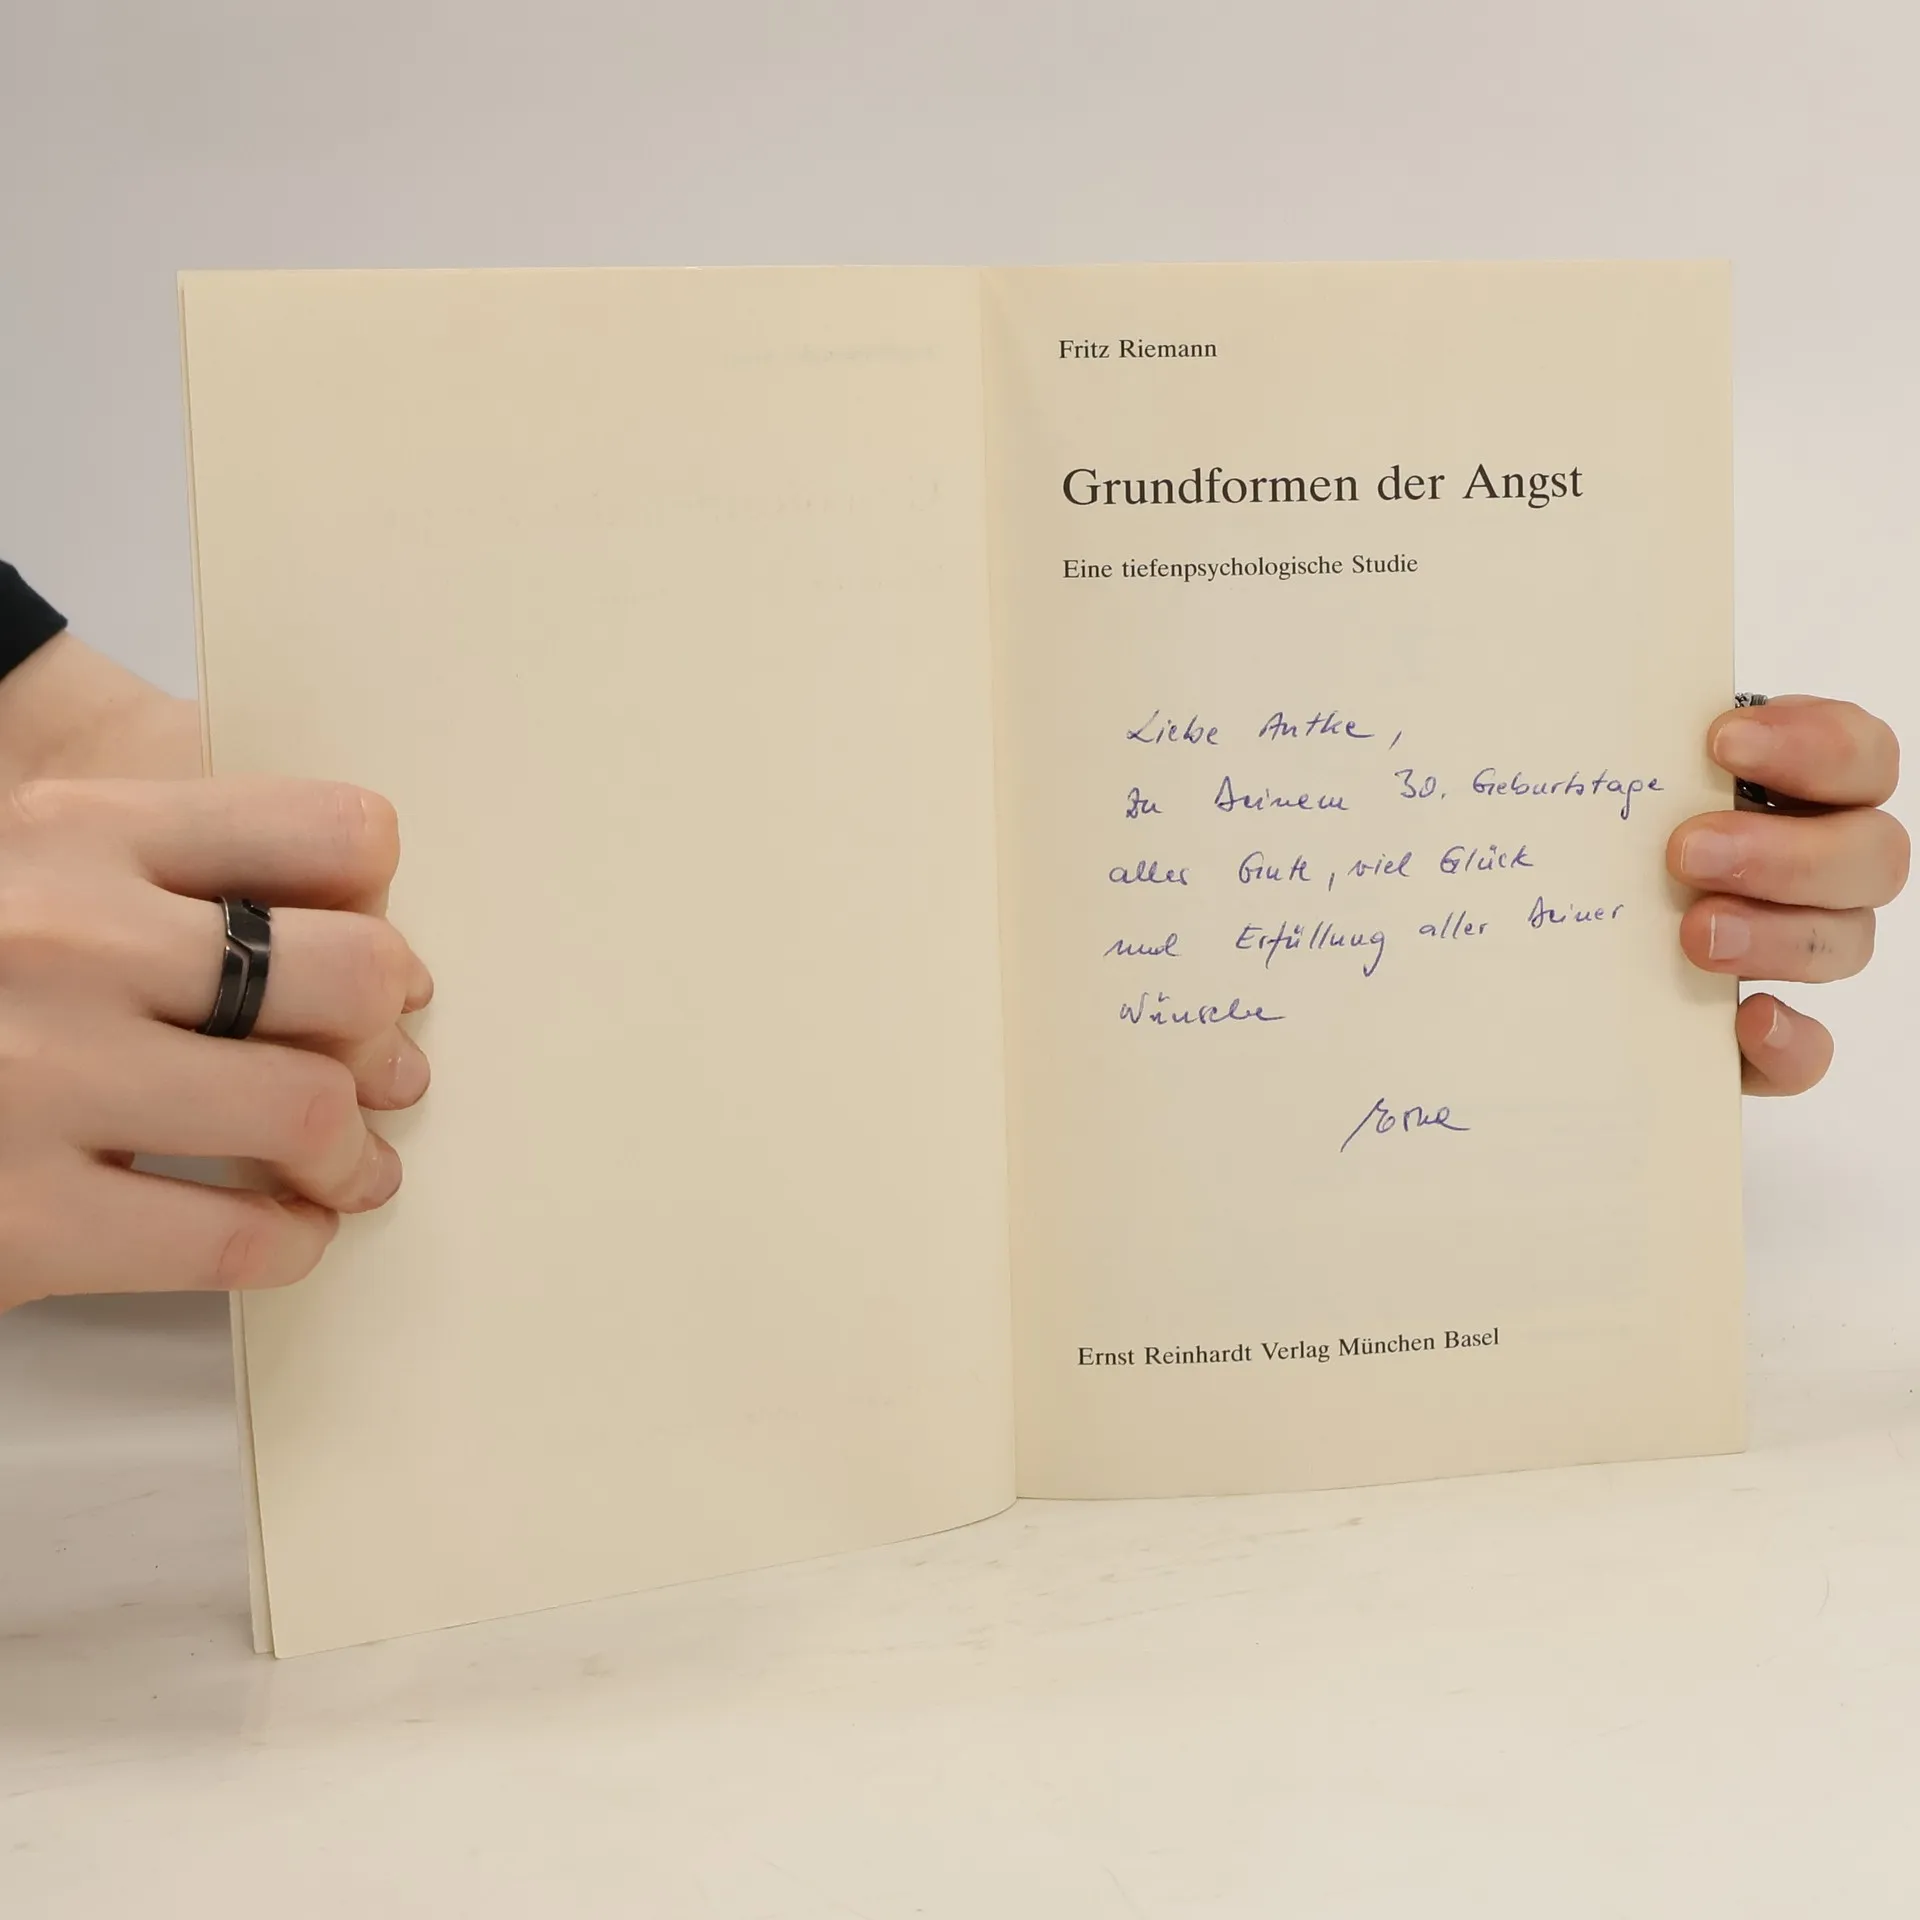 Fritz Riemann
Grundformen der Angst
Eine tiefenpsychologische Studie
Liebe Antke,
zu Deinem 30. Geburtstage
alles Gute, viel Glück
und Erfüllung aller Deiner
Wünsche
Ernst Reinhardt Verlag München Basel